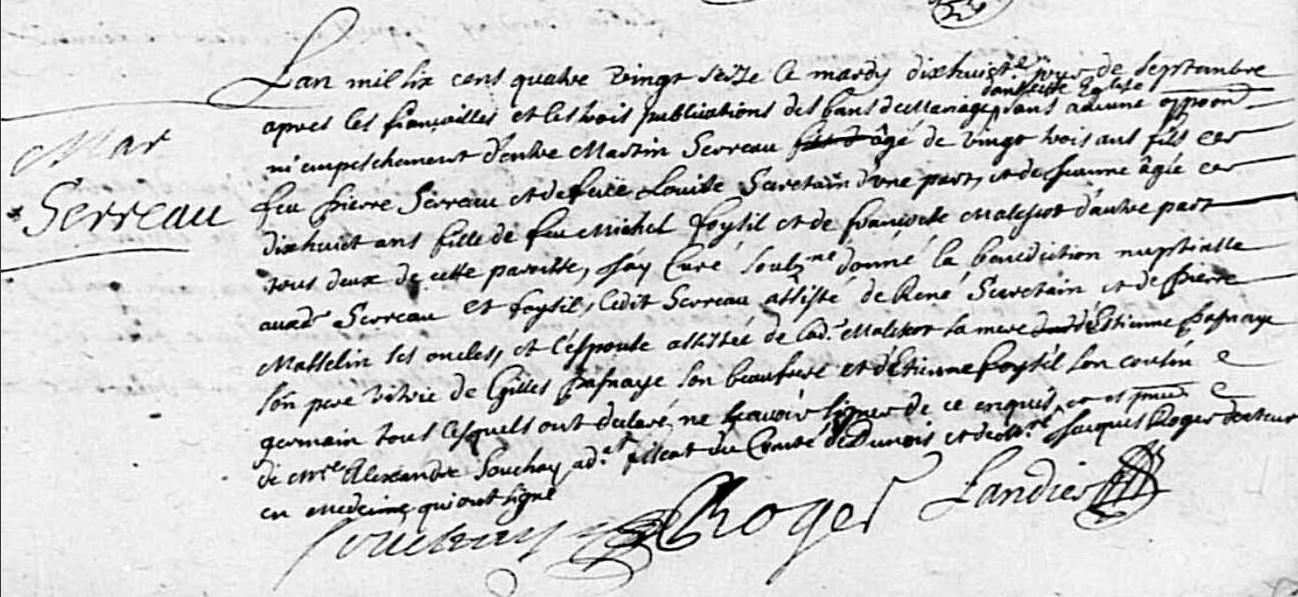 Mar
Serreau
Lan mil six cens quatre vingt seize le mardy dixhuictie. jour de septambre
dans cette Eglise
apres les fiançailles et les trois publications des bans de Mariage, sans aucune oppoon
ni empeschement d'entre Martin Serreau âgé de vingt trois ans fils de
feu Pierre Serreau et de feüe Louise Secretain d'une part, et de Jeanne âgée de
dixhuict ans fille de feu Michel Foysil et de francoise Malescot d'autre part
tous deux de cette paroisse, J'ay Curé soubz.né donné la benediction nuptialle
auxd. Serreau et foysil, ledit Serreau assisté de René Secretain et de Pierre
Masselin ses oncles, et l'espouse assistée de lad. Malescot sa mere d'Etienne Pasnaye
son pere vitric de Gilles Pasnaye son beaufrere et d'Etienne foysil son cousin
germain tous lesquels ont declaré ne sçavoir signer de ce enquis, et en pnce
de Mre Alexandre Souchay ad.at fiscal du Comté de Dunois et de Mre Jacques Roger docteur
en medecine, qui ont signé
Souchay Roger Landier